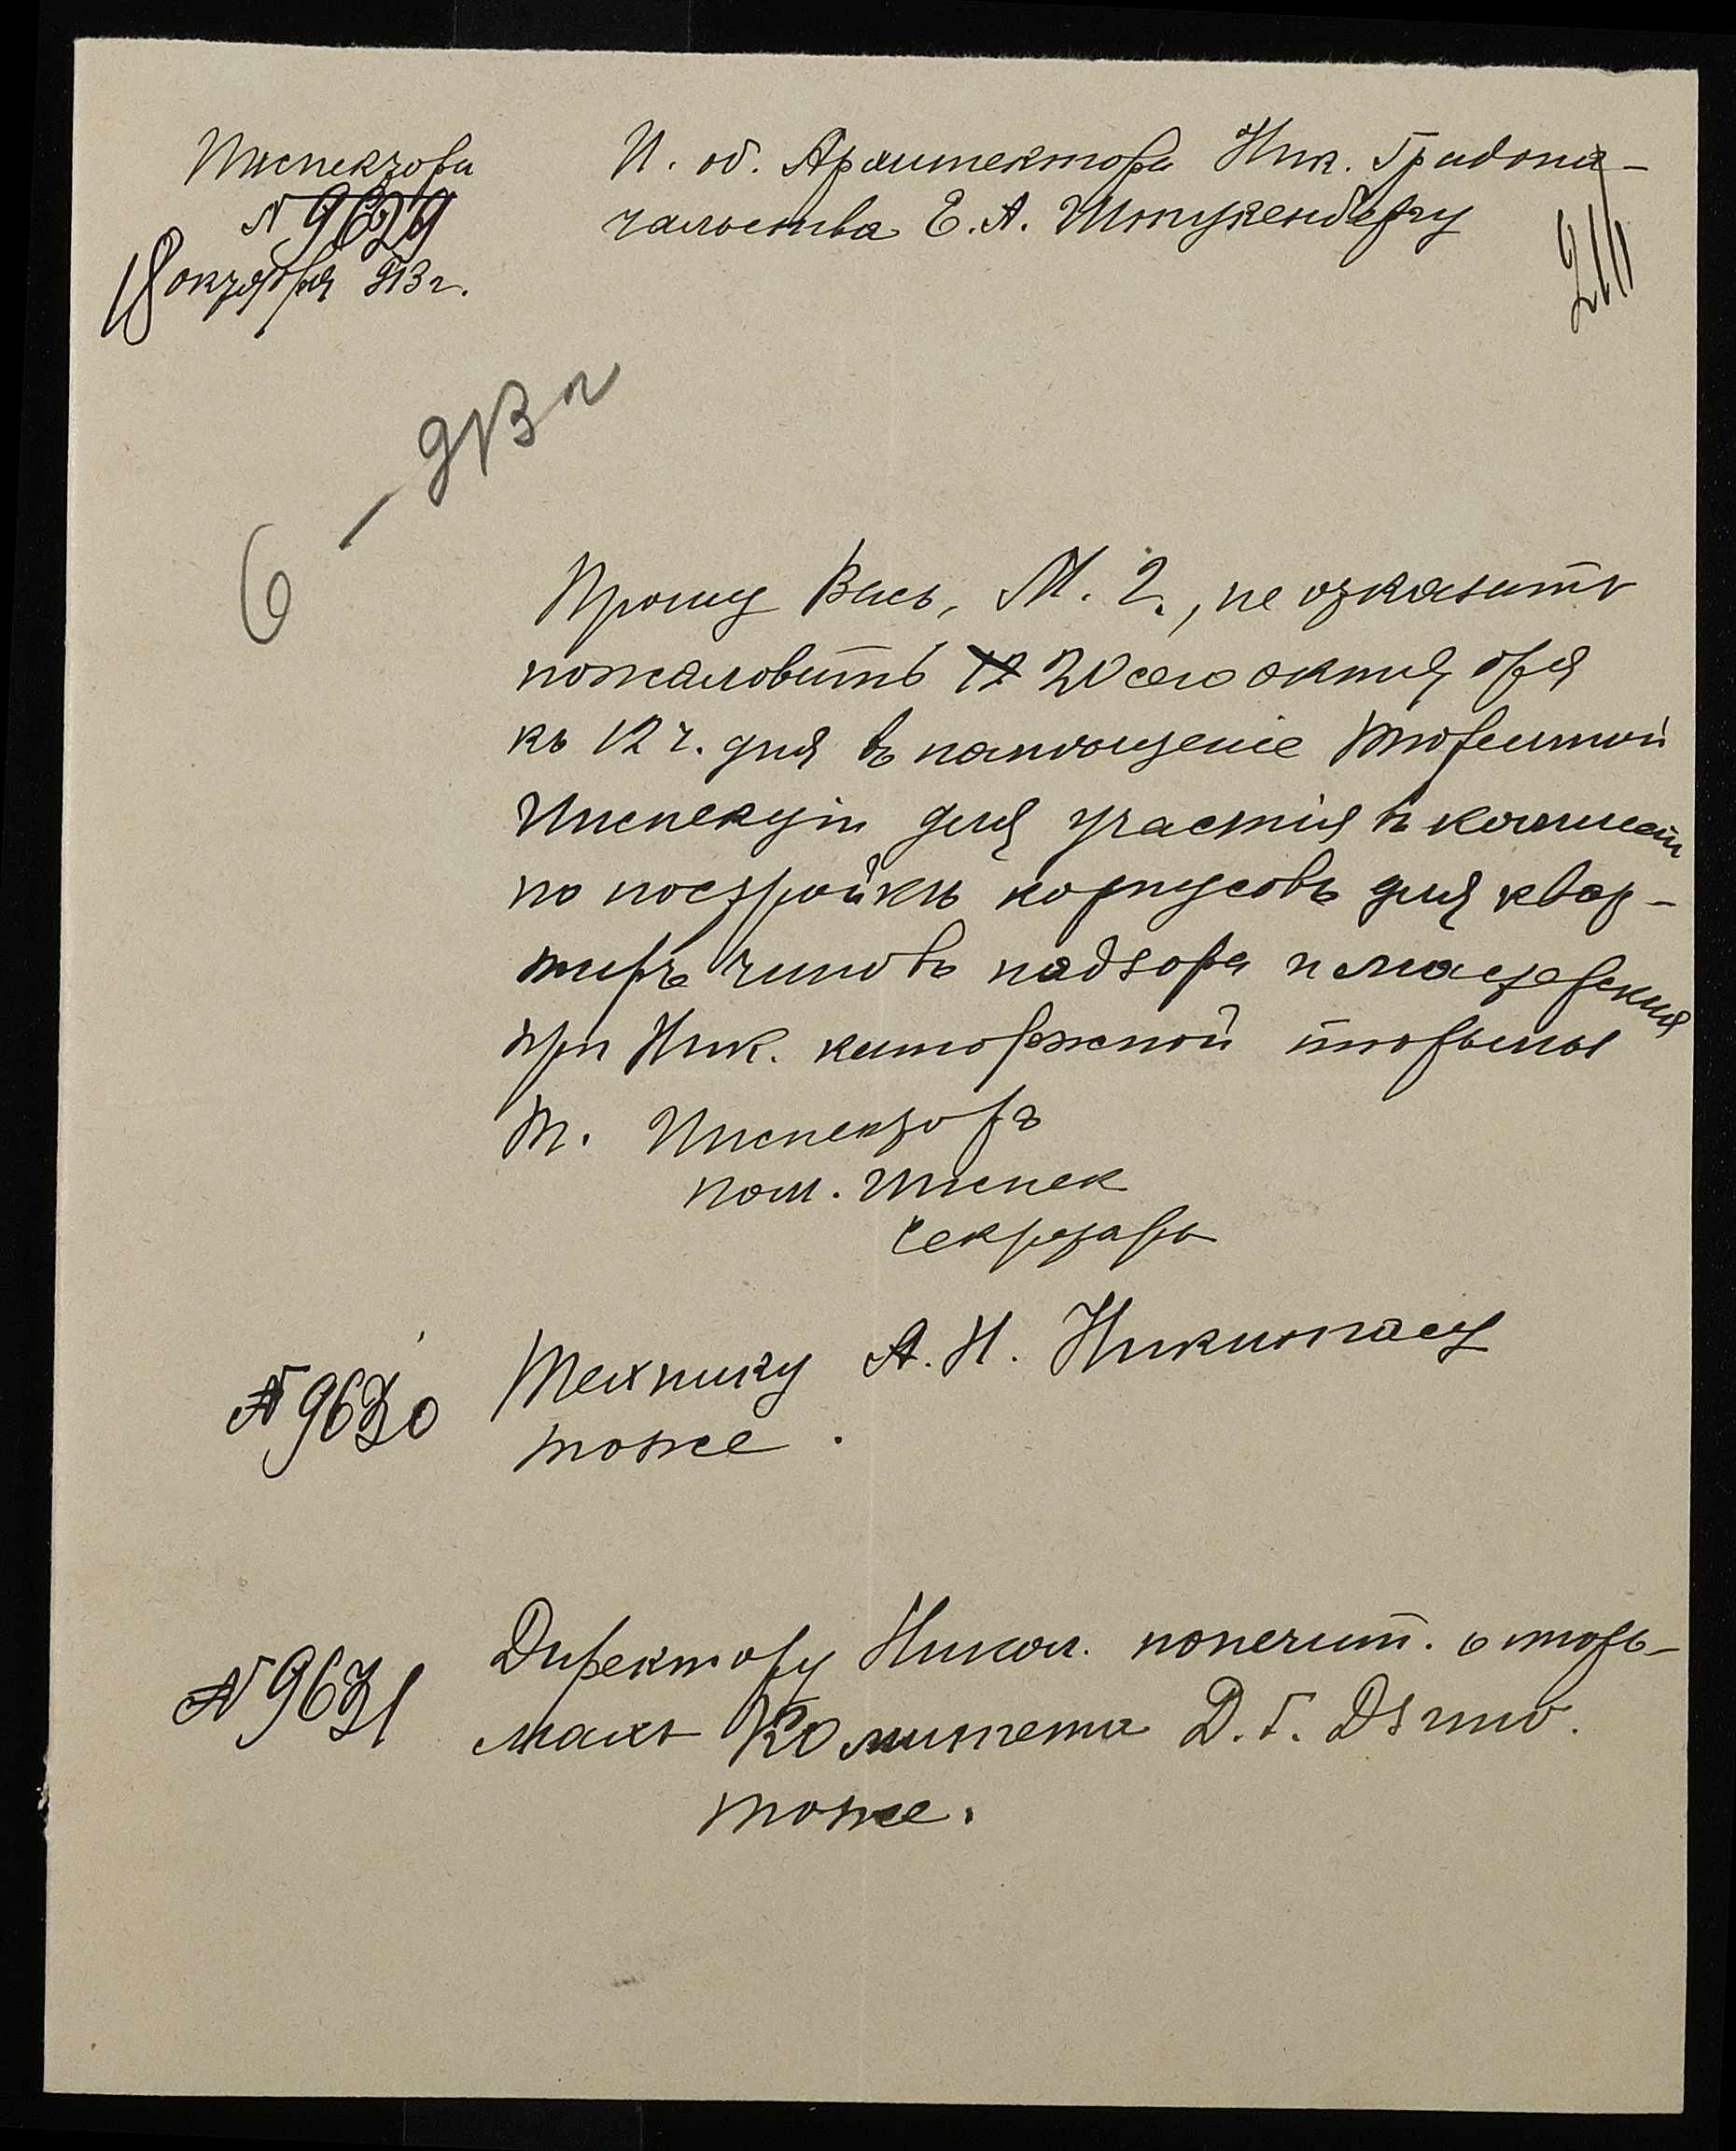 Инспектора
№ 9629
18 октября 913 г.
И. об. Архитектора Ник. Градона-
чальства Е. А. Штукенбергу
211
6 – 913 г
Прошу Васъ, М. Г., не отказать
пожаловать 20 сего октября
къ 12 ч. дня въ помѣщеніе Тюремной
Инспекціи для участія въ комиссіи
по постройкѣ корпусовъ для квар-
тиръ чиновъ надзора и мастерскія
при Ник. каторжной тюрьмы
Т. Инспекторъ
Пом. Инспек
Секретарь
№ 9630
Технику А. Н.
тоже.
№ 9631
Директору Никол. попечит. о тюрь-
махъ Комитета Д. Г.
тоже.